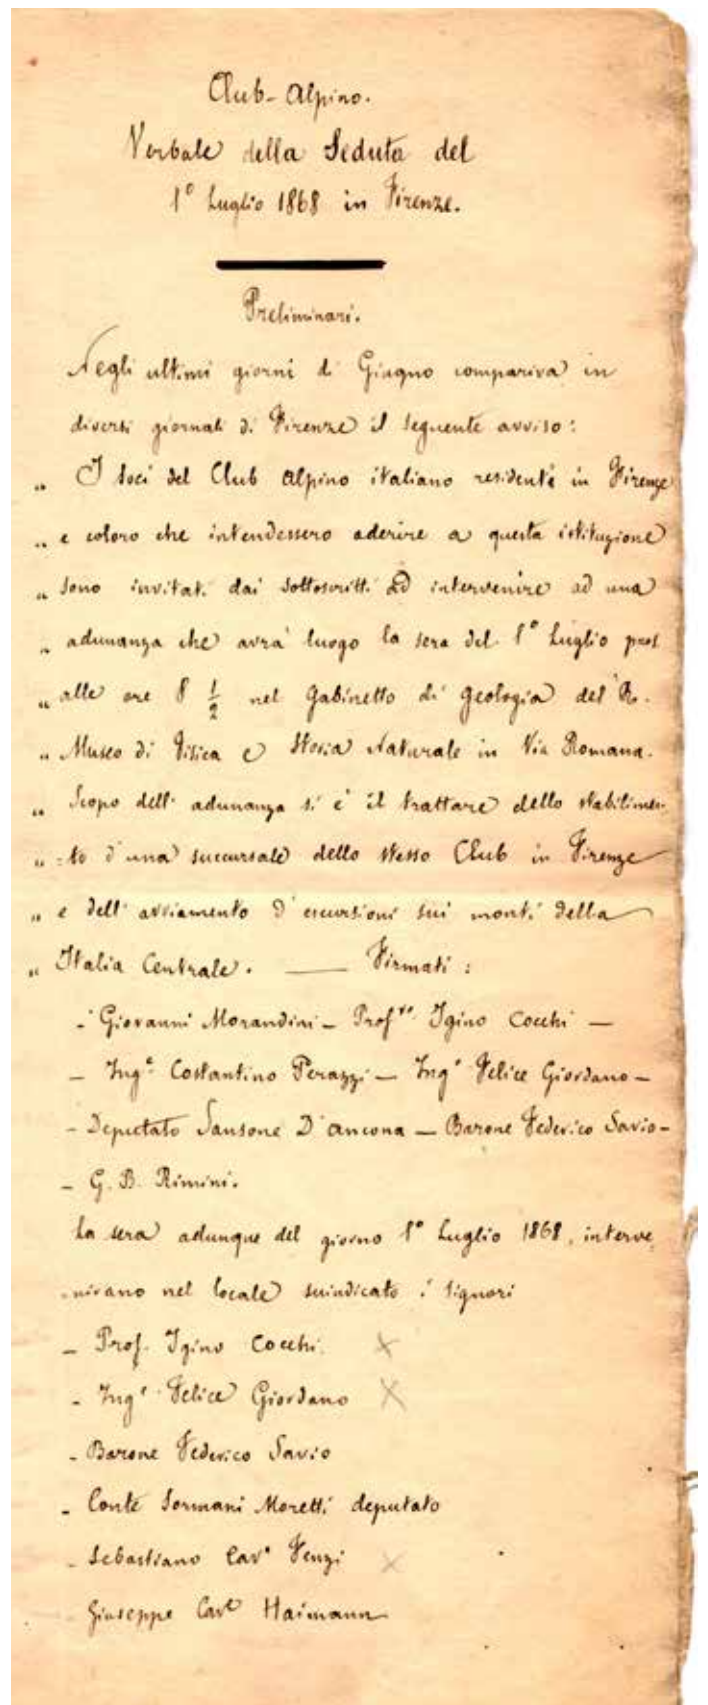 Club-Alpino.
Verbale della Seduta del
1º Luglio 1868 in Firenze.
Preliminari.
Negli ultimi giorni di Giugno compariva in
diversi giornali di Firenze il seguente avviso:
„ I soci del Club Alpino italiano residenti in Firenze
„ e coloro che intendessero aderire a questa istituzione
„ sono invitati dai sottoscritti ad intervenire ad una
„ adunanza che avrà luogo la sera del 1º Luglio pros.
„ alle ore 8 1/2 nel Gabinetto di Geologia del R.
„ Museo di Fisica e Storia Naturale in Via Romana.
„ Scopo dell' adunanza si è il trattare dello stabilimen-
„ =to d'una succursale dello stesso Club in Firenze
„ e dell' avviamento d'escursioni sui monti della
„ Italia Centrale. — Firmati:
- Giovanni Morandini - Prof.re Igino Cocchi -
- Ing.e Costantino Perazzi - Ing.e Felice Giordano -
- Deputato Sansone D'Ancona - Barone Federico Savio -
- G. B. Rimini.
La sera adunque del giorno 1º Luglio 1868, interve
-nivano nel locale suindicato i signori
- Prof. Igino Cocchi x
- Ing.e Felice Giordano x
- Barone Federico Savio
- Conte Sormani Moretti deputato
- Sebastiano Cav.e Fenzi x
- Giuseppe Cav.e Haimann